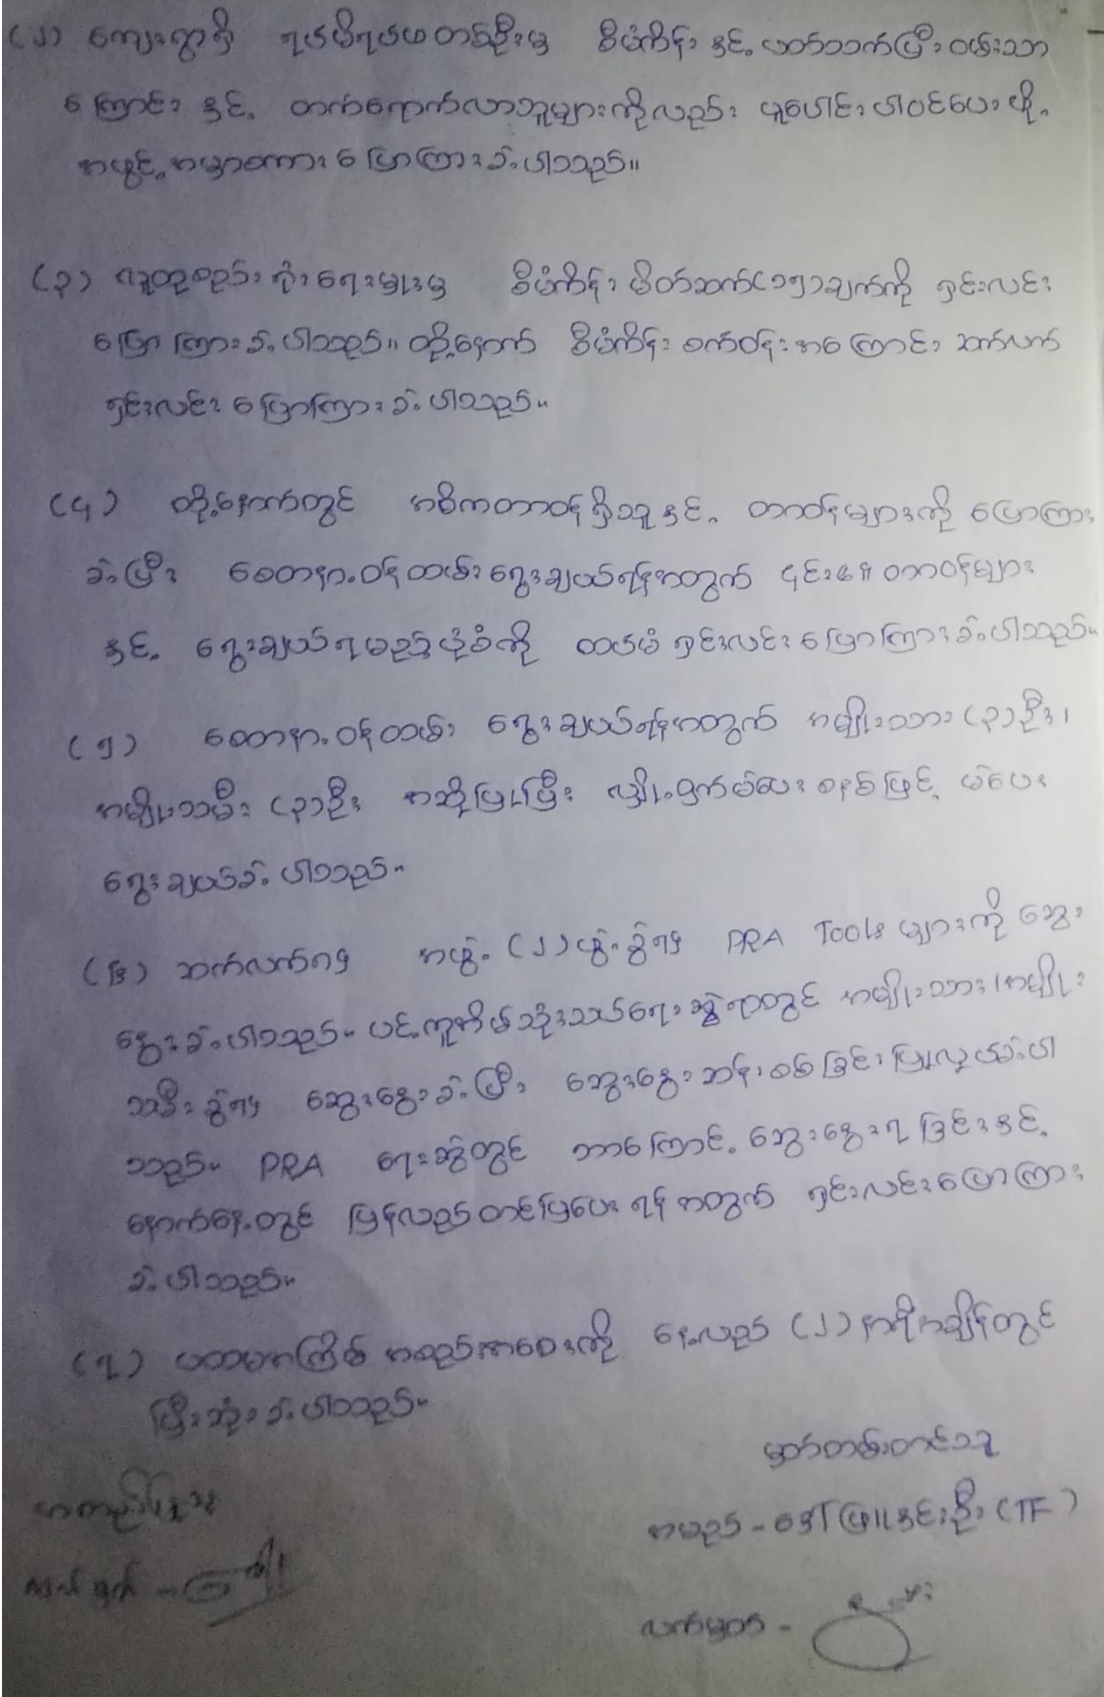 (၂) ကျေးရွာရှိ ရပ်မိရပ်ဖတစ်ဦးမှ စီမံကိန်း နှင့် ပတ်သက်ပြီး ဝမ်းသာ
ကြောင်း နှင့် တက်ရောက်လာသူများကိုလည်း ပူးပေါင်းပါဝင်ပေးဖို့
အဖွင့်အမှာစကား ပြောကြားခဲ့ပါသည်။
(၃) လူထုစည်းရုံးရေးမှူးမှ စီမံကိန်း မိတ်ဆက်(၁၅)ချက်ကို ရှင်းလင်း
ပြောကြားခဲ့ပါသည်။ ထို့နောက် စီမံကိန်း စက်ဝန်းအကြောင်း ဆက်လက်
ရှင်းလင်းပြောကြားခဲ့ပါသည်။
(၄) ထို့နောက်တွင် အဓိကတာဝန်ရှိသူနှင့် တာဝန်များကို ပြောကြား
ခဲ့ပြီး စေတနာ့ဝန်ထမ်းရွေးချယ်ရန်အတွက် ၎င်း၏ တာဝန်များ
နှင့် ရွေးချယ်ရမည့်ပုံစံကို ထပ်မံ ရှင်းလင်းပြောကြားခဲ့ပါသည်။
(၅) စေတနာ့ဝန်ထမ်း ရွေးချယ်ရန်အတွက် အမျိုးသား (၃)ဦး၊
အမျိုးသမီး (၃)ဦး အဆိုပြုပြီး လျှို့ဝှက်မဲပေးစနစ်ဖြင့် မဲပေး
ရွေးချယ်ခဲ့ပါသည်။
(၆) ဆက်လက်၍ အဖွဲ့ (၂)ဖွဲ့ခွဲ၍ PRA Tools များကို ဆွေး
နွေးခဲ့ပါသည်။ ပင့်ကူအိမ်သုံးသပ်ရေးဆွဲရာတွင် အမျိုးသား၊အမျိုး
သမီးခွဲ၍ ဆွေးနွေးခဲ့ပြီး ဆွေးနွေးဆန်းစစ်ခြင်းပြုလုပ်ခဲ့ပါ
သည်။ PRA ရေးဆွဲတွင် ဘာကြောင့် ဆွေးနွေးရခြင်းနှင့်
နောက်နေ့တွင် ပြန်လည်တင်ပြပေးရန်အတွက် ရှင်းလင်းပြောကြား
ခဲ့ပါသည်။
(၇) ပထမအကြိမ် အစည်းအဝေးကို နေ့လည် (၂)နာရီအချိန်တွင်
ပြီးဆုံးခဲ့ပါသည်။
မှတ်တမ်းတင်သူ
အတည်ပြုသူ
အမည် - ဒေါ်ဖြူနှင်းဦး (TF)
လက်မှတ် -